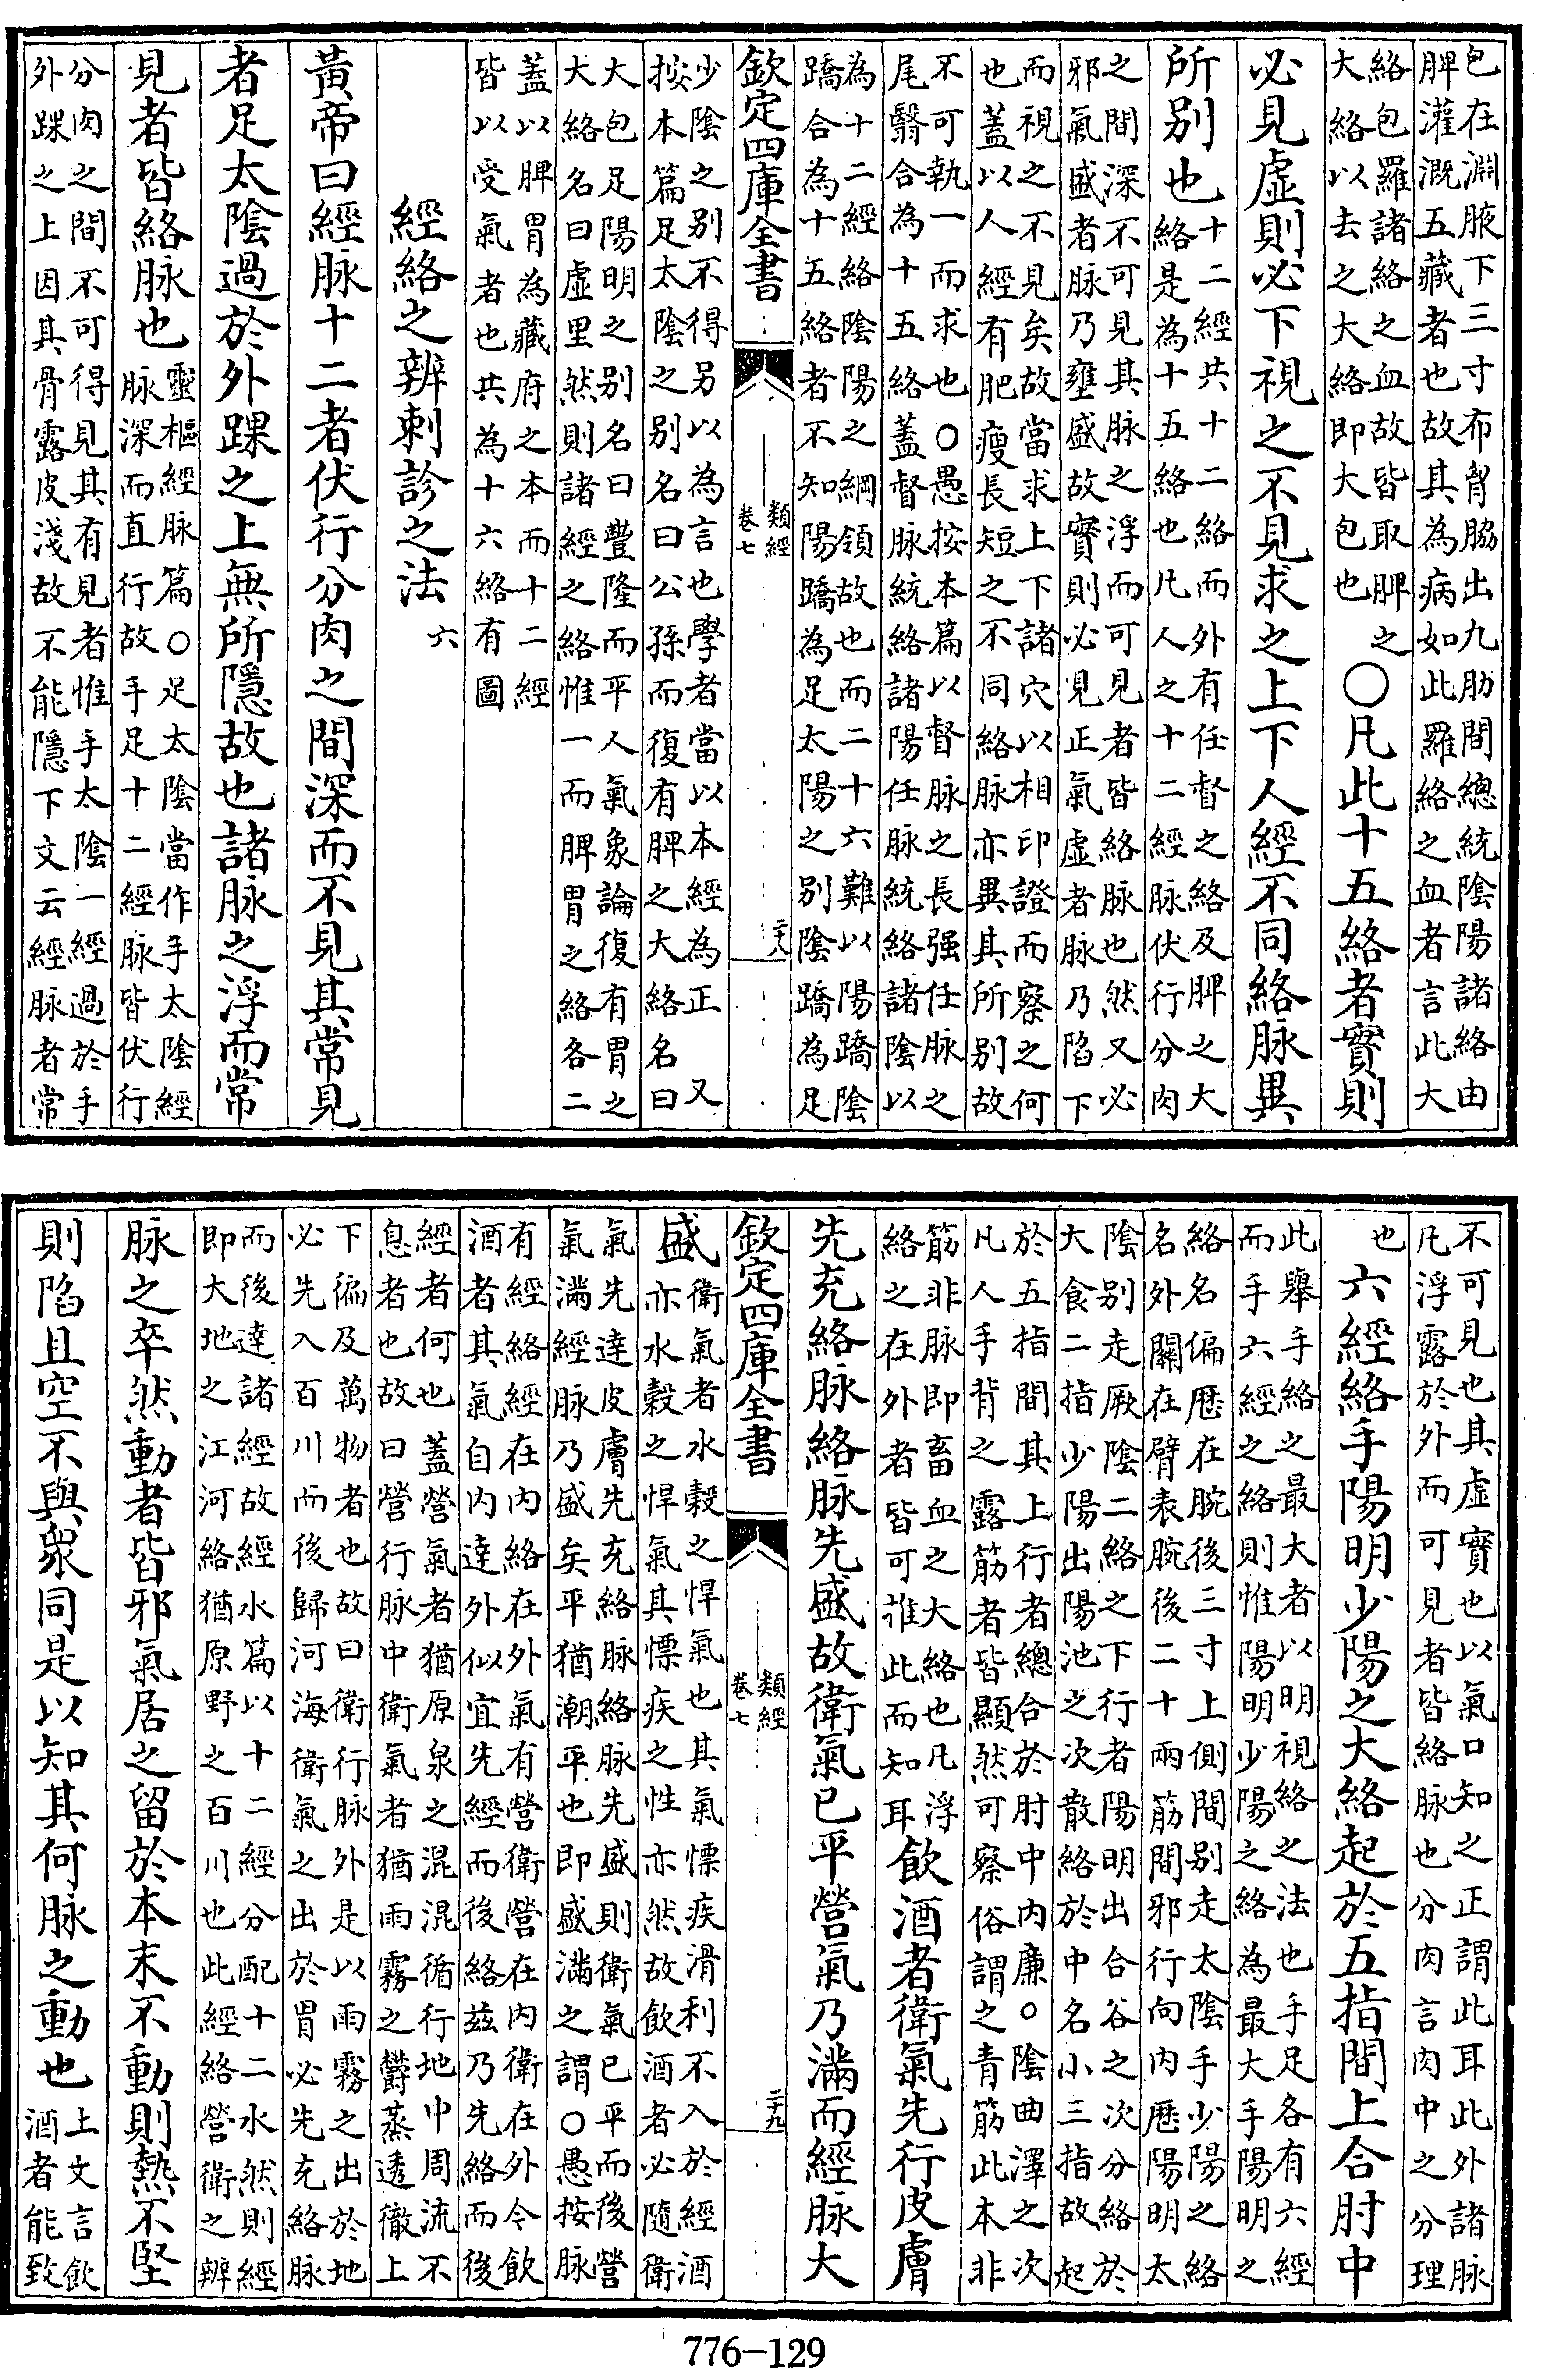 包在淵腋下三寸布胷脇出九肋間總統陰陽諸絡由
脾灌溉五藏者也故其為病如此羅絡之血者言此大
絡包羅諸絡之血故皆取脾之
大絡以去之大絡即大包也
○凡此十五絡者實則
必見虛則必下視之不見求之上下人經不同絡脉異
所别也
十二經共十二絡而外有任督之絡及脾之大
絡是為十五絡也凡人之十二經脉伏行分肉
之間深不可見其脉之浮而可見者皆絡脉也然又必
邪氣盛者脉乃壅盛故實則必見正氣虛者脉乃陷下
而視之不見矣故當求上下諸穴以相印證而察之何
也蓋以人經有肥瘦長短之不同絡脉亦異其所别故
不可執一而求也○愚按本篇以督脉之長强任脉之
尾翳合為十五絡蓋督脉統絡諸陽任脉統絡諸陰以
為十二經絡陰陽之綱領故也而二十六難以陽蹻陰
蹻合為十五絡者不知陽蹻為足太陽之别陰蹻為足
欽定四庫全書
類經
卷七
二十八
少陰之别不得另以為言也學者當以本經為正又
按本篇足太陰之别名曰公孫而復有脾之大絡名曰
大包足陽明之别名曰豐隆而平人氣象論復有胃之
大絡名曰虛里然則諸經之絡惟一而脾胃之絡各二
蓋以脾胃為藏府之本而十二經
皆以受氣者也共為十六絡有圖
經絡之辨刺診之法
六
黃帝曰經脉十二者伏行分肉之間深而不見其常見
者足太陰過於外踝之上無所隱故也諸脉之浮而常
見者皆絡脉也
靈樞經脉篇○足太陰當作手太陰經
脉深而直行故手足十二經脉皆伏行
分肉之間不可得見其有見者惟手太陰一經過於手
外踝之上因其骨露皮淺故不能隱下文云經脉者常
不可見也其虛實也以氣口知之正謂此耳此外諸脉
凡浮露於外而可見者皆絡脉也分肉言肉中之分理
也
六經絡手陽明少陽之大絡起於五指間上合肘中
此舉手絡之最大者以明視絡之法也手足各有六經
而手六經之絡則惟陽明少陽之絡為最大手陽明之
絡名偏歷在腕後三寸上側間别走太陰手少陽之絡
名外關在臂表腕後二寸兩筋間邪行向内歷陽明太
陰别走厥陰二絡之下行者陽明出合谷之次分絡於
大食二指少陽出陽池之次散絡於中名小三指故起
於五指間其上行者總合於肘中内廉○陰曲澤之次
凡人手背之露筋者皆顯然可察俗謂之青筋此本非
筋非脉即畜血之大絡也凡浮
絡之在外者皆可推此而知耳
飲酒者衛氣先行皮膚
先充絡脉絡脉先盛故衛氣已平營氣乃滿而經脉大
欽定四庫全書
類經
卷七
二十九
盛
衛氣者水穀之悍氣也其氣慓疾滑利不入於經酒
亦水穀之悍氣其慓疾之性亦然故飲酒者必隨衛
氣先達皮膚先充絡脉絡脉先盛則衛氣已平而後營
氣滿經脉乃盛矣平猶潮平也即盛滿之謂○愚按脉
有經絡經在内絡在外氣有營衛營在内衛在外今飲
酒者其氣自内達外似宜先經而後絡兹乃先絡而後
經者何也蓋營氣者猶原泉之混混循行地中周流不
息者也故曰營行脉中衛氣者猶雨霧之鬱蒸透徹上
下徧及萬物者也故曰衛行脉外是以雨霧之出於地
必先入百川而後歸河海衛氣之出於胃必先充絡脉
而後達諸經故經水篇以十二經分配十二水然則經
即大地之江河絡猶原野之百川也此經絡營衛之辨
脉之卒然動者皆邪氣居之留於本末不動則熱不堅
則陷且空不與衆同是以知其何脉之動也
上文言飲
酒者能致
776–129